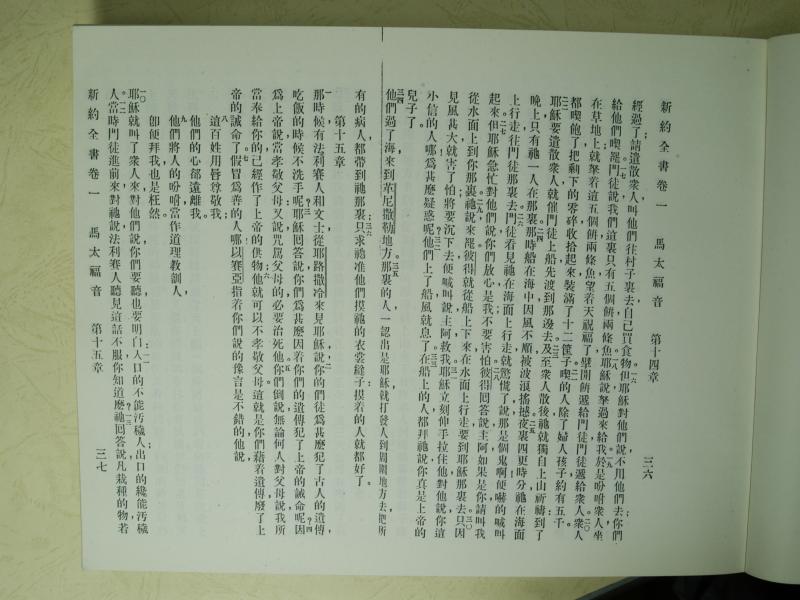 新約全書卷一　馬太福音　第十四章　三六
經過了請遣散衆人叫他們往村子裏去自己買食物但耶穌對他們說不用他們去你們
給他們喫罷門徒說我們這裏只有五個餅兩條魚耶穌說拏過來給我於是吩咐衆人坐
在草地上就拏着這五個餅兩條魚望着天祝福了擘開餅遞給門徒門徒遞給衆人衆人
都喫飽了把剩下的零碎收拾起來裝滿了十二筐子喫的人除了婦人孩子約有五千
耶穌要遣散衆人就催門徒上船先渡到那邊去及至衆人散後祂就獨自上山祈禱到了
晚上只有祂一人在那裏那時船在海中因風不順被波浪搖撼夜裏四更時分祂在海面
上行走往門徒那裏去門徒看見祂在海面上行走就驚慌了說那是個鬼啊便嚇的喊叫
起來但耶穌急忙對他們說你們放心是我不要害怕彼得回答說主阿如果是你請叫我
從水面上到你那裏祂說來罷彼得就從船上下來在水面上行走要到耶穌那裏去只因
見風甚大就害了怕將要沉下去便喊叫說主阿救我耶穌立刻伸手拉住他對他說你這
小信的人哪爲甚麼疑惑呢他們上了船風就息了在船上的人都拜祂說你真是上帝的
兒子了
他們過了海來到革尼撒勒地方那裏的人一認出是耶穌就打發人到周圍地方去把所
有的病人都帶到祂那裏只求祂准他們摸祂的衣裳䍁子摸着的人就都好了
第十五章
那時候有法利賽人和文士從耶路撒冷來見耶穌說你的們徒爲甚麼犯了古人的遺傳
吃飯的時候不洗手呢耶穌回答說你們爲甚麼因着你們的遺傳犯了上帝的誡命呢因
爲上帝說當孝敬父母又說咒罵父母的必要治死他你們倒說無論何人對父母說我所
當奉給你的已經作了上帝的供物他就可以不孝敬父母這就是你們藉着遺傳廢了上
帝的誡命了假冒爲善的人哪以賽亞指着你們說的豫言是不錯的他說
這百姓用唇尊敬我
他們的心郤遠離我
他們將人的吩咐當作道理教訓人
卽便拜我也是枉然
耶穌就叫了衆人來對他們說你們要聽也要明白入口的不能汚穢人出口的纔能汚穢
人當時門徒進前來對祂說法利賽人聽見這話不服你知道麼祂回答說凡栽種的物若
新約全書卷一　馬太福音　第十五章　三七